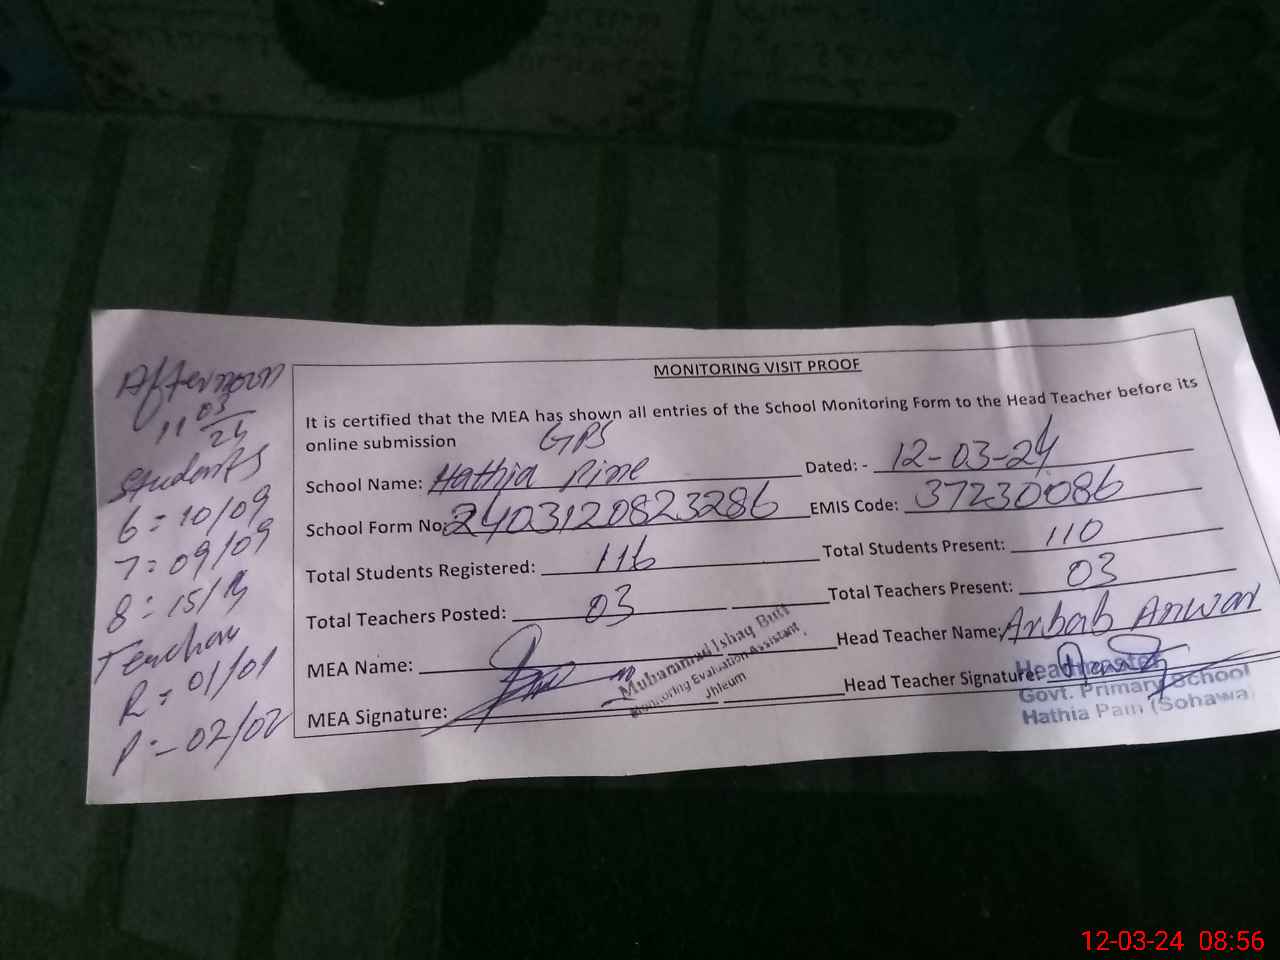 Afternoon
11 03/24
Students
6 = 10/09
7 = 09/09
8 = 15/
R = 01/01
P - 02/02
MONITORING VISIT PROOF
It is certified that the MEA has shown all entries of the School Monitoring Form to the Head Teacher before its
online submission
GPS
School Name: Hathia Dated: - 12-03-24
School Form No: 2403120823286 EMIS Code: 37230086
Total Students Registered: 116 Total Students Present: 110
Total Teachers Posted: 03 Total Teachers Present: 03
MEA Name: Head Teacher Name: Arbab Anwar
Muhammad Ishaq Butt
Monitoring Evaluation Assistant,
Jhleum
MEA Signature: Head Teacher Signature:
Headmaster
Govt. Primary School
Hathia Pam (Sohawa)
12-03-24 08:56